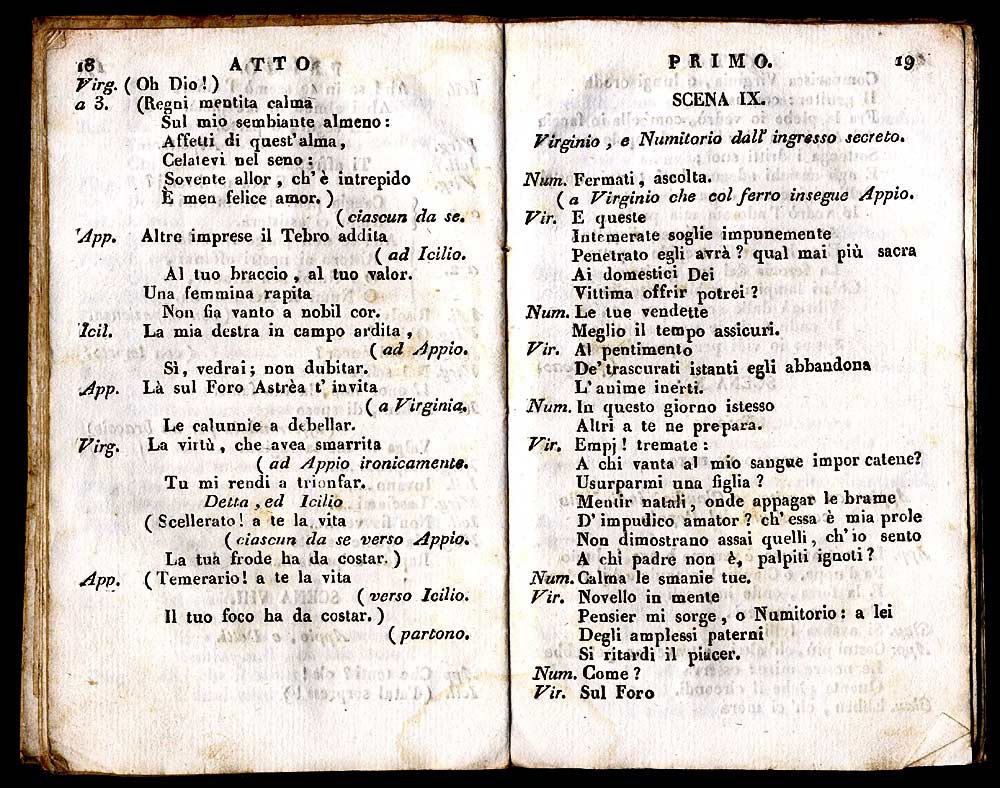 18 ATTO
Virg. (Oh Dio!)
a 3. (Regni mentita calma
Sul mio sembiante almeno:
Affetti di quest'alma,
Celatevi nel seno:
Sovente allor, ch'è intrepido
È men felice amor.)
(ciascun da se.
App. Altre imprese il Tebro addita
(ad Icilio.
Al tuo braccio, al tuo valor.
Una femmina rapita
Non fia vanto a nobil cor.
Icil. La mia destra in campo ardita,
(ad Appio.
Sì, vedrai; non dubitar.
App. Là sul Foro Astrèa t'invita
(a Virginia.
Le calunnie a debellar.
Virg. La virtù, che avea smarrita
(ad Appio ironicamente.
Tu mi rendi a trionfar.
Detta, ed Icilio
(Scellerato! a te la vita
(ciascun da se verso Appio.
La tua frode ha da costar.)
App. (Temerario! a te la vita
(verso Icilio.
Il tuo foco ha da costar.)
(partono.
PRIMO. 19
SCENA IX.
Virginio, e Numitorio dall' ingresso secreto.
Num. Fermati, ascolta.
(a Virginio che col ferro insegue Appio.
Vir. E queste
Intemerate soglie impunemente
Penetrato egli avrà? qual mai più sacra
Ai domestici Dei
Vittima offrir potrei?
Num. Le tue vendette
Meglio il tempo assicuri.
Vir. Al pentimento
De' trascurati istanti egli abbandona
L'anime inerti.
Num. In questo giorno istesso
Altri a te ne prepara.
Vir. Empj! tremate:
A chi vanta al mio sangue impor catene?
Usurparmi una figlia?
Mentir natali, onde appagar le brame
D'impudico amator? ch'essa è mia prole
Non dimostrano assai quelli, ch'io sento
A chi padre non è, palpiti ignoti?
Num. Calma le smanie tue.
Vir. Novello in mente
Pensier mi sorge, o Numitorio: a lei
Degli amplessi paterni
Si ritardi il piacer.
Num. Come?
Vir. Sul Foro